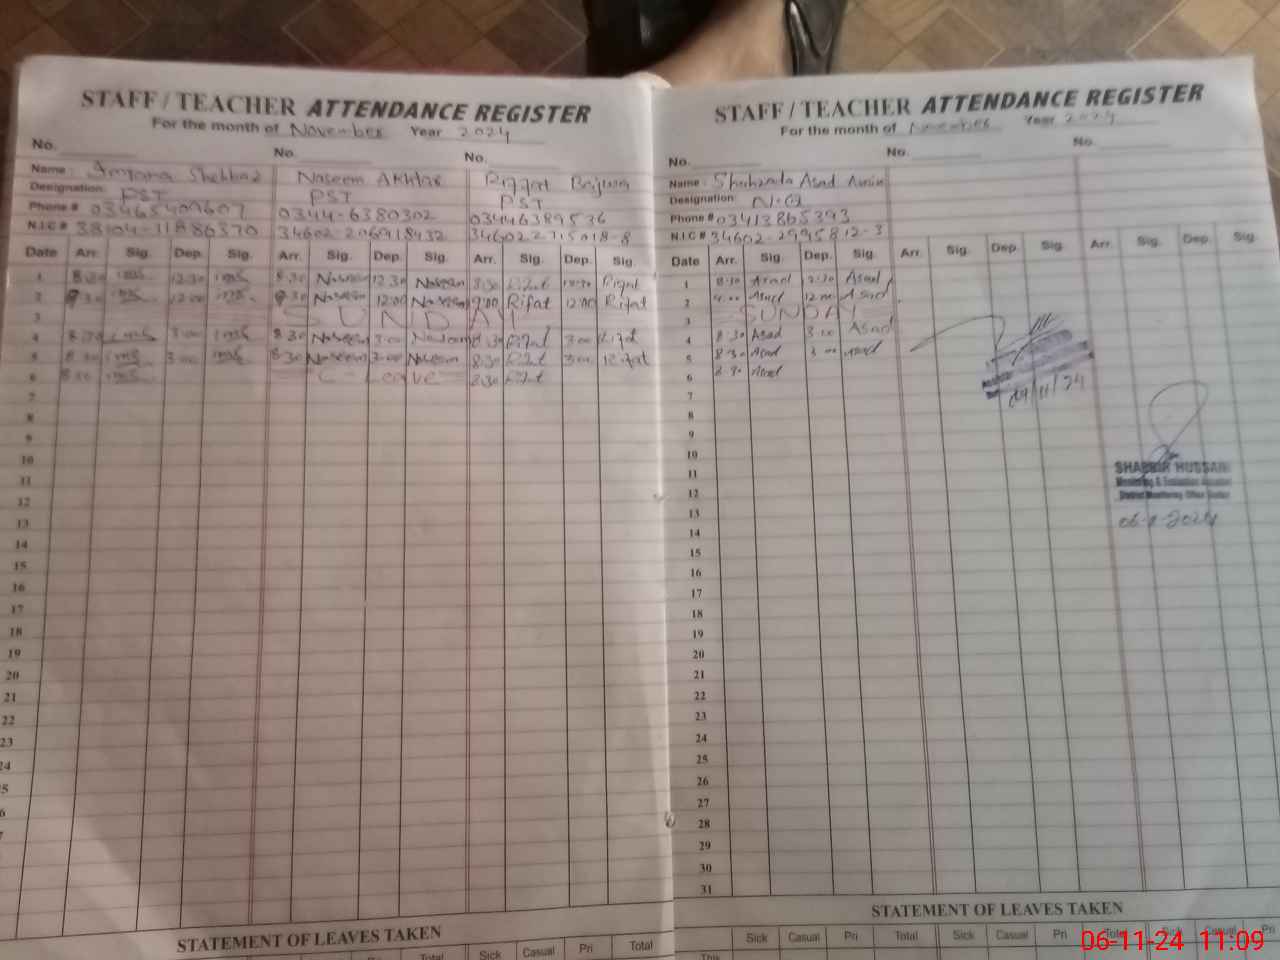 STAFF / TEACHER ATTENDANCE REGISTER
For the month of November Year 2024
No. No. No.
Name : Shehbaz Naseem Akhtar Riffat Bajwa
Designation: PST PST PST
Phone # 03465409607 0344-6380302 03446389536
N.I.C # 38104-11886370 34602-206918432 346022715018-8
Date Arr. Sig. Dep. Sig. Arr. Sig. Dep. Sig. Arr. Sig. Dep. Sig.
1 8:30 12:30 8:30 Naseem 12:30 Naseem 8:30 Rifat 12:30 Rifat
2 9:30 12:00 9:30 Naseem 12:00 Naseem 9:00 Rifat 12:00 Rifat
3 SUNDAY
4 8:30 3:00 8:30 Naseem 3:00 Naseem 8:30 Rifat 3:00 Rifat
5 8:30 3:00 8:30 Naseem 3:00 Naseem 8:30 Rifat 3:00 Rifat
6 8:30 C-Leave 8:30 Rifat
7
8
9
10
11
12
13
14
15
16
17
18
19
20
21
22
23
24
STATEMENT OF LEAVES TAKEN
Sick Casual Pri Total
STAFF / TEACHER ATTENDANCE REGISTER
For the month of November Year 2024
No. No. No.
Name : Shahzada Asad Amin
Designation: N.Q
Phone # 03413865393
N.I.C # 34602-2995812-3
Date Arr. Sig. Dep. Sig. Arr. Sig. Dep. Sig. Arr. Sig. Dep. Sig.
1 8:30 Asad 12:30 Asad
2 9:00 Asad 12:00 Asad
3 SUNDAY
4 8:30 Asad 3:00 Asad
5 8:30 Asad 3:00 Asad
6 8:30 Asad
04/11/24
7
8
9
10
11
12
13
14
15
16
17
18
19
20
21
22
23
24
25
26
27
28
29
30
31
SHABBIR HUSSAIN
Monitoring & Evaluation Assistant
District Monitoring Office
06-11-2024
STATEMENT OF LEAVES TAKEN
Sick Casual Pri Total Sick Casual Pri Total Sick Casual Pri
This
06-11-24 11:09